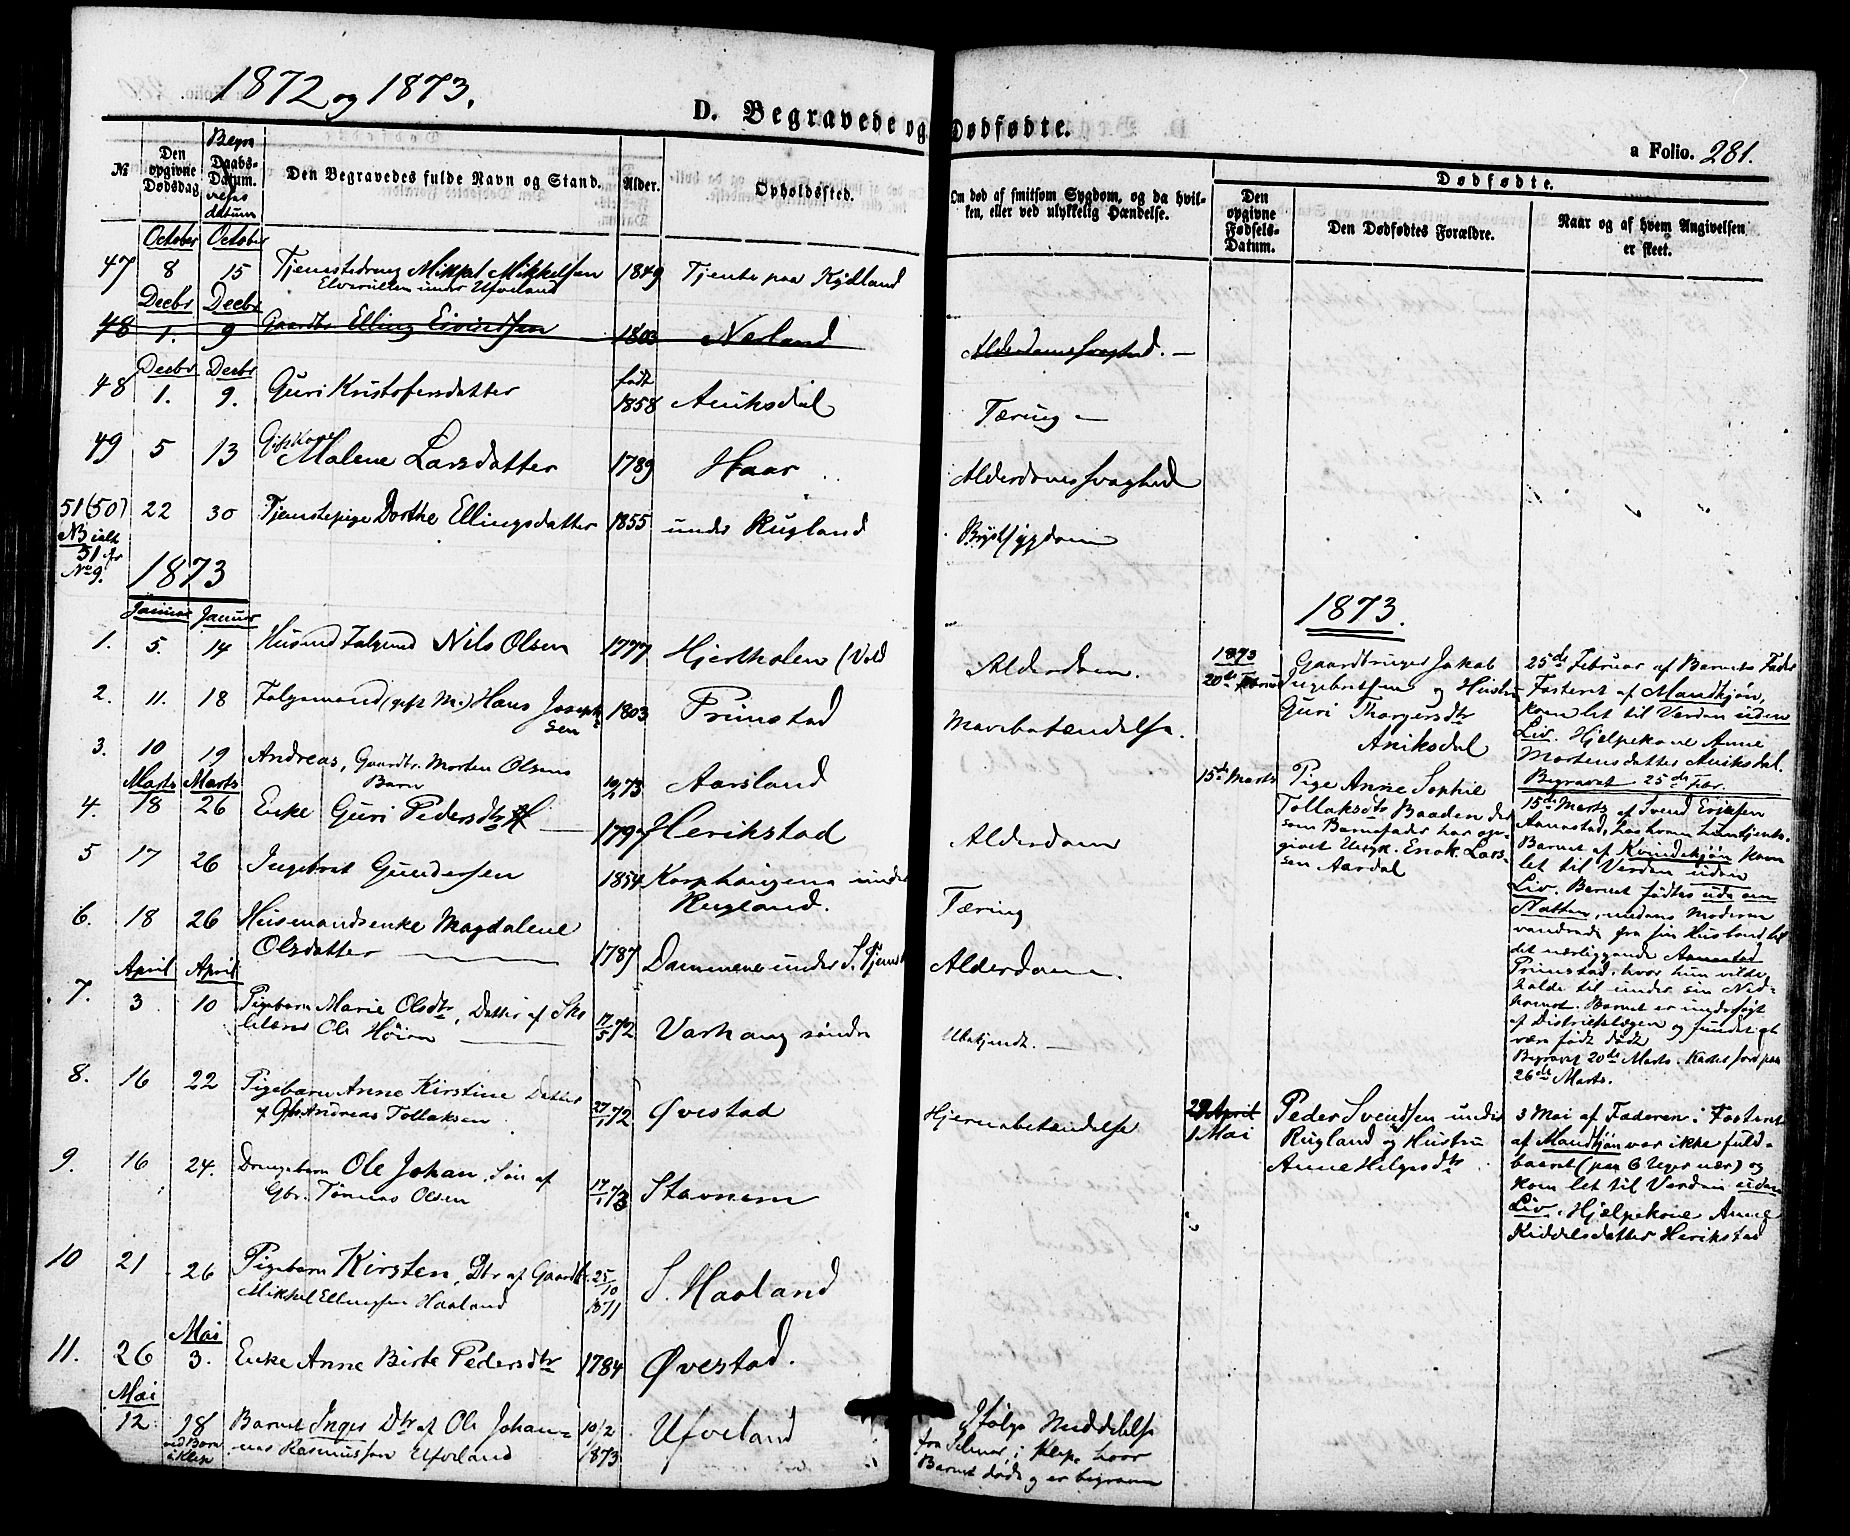 1872 og 1873.
D. Begravede og Dødfødte.
a Folio. 281.
№
Den opgivne Dødsdag
Begr
Daabs-Datum.
datum
Den Begravedes fulde Navn og Stand.
Alder.
Opholdssted.
Om død af smitsom Sygdom, og da hvil-
ken, eller ved ulykkelig Hændelse.
Dødfødte.
Den opgivne Fødsels-Datum.
Den Dødfødtes Forældre.
Naar og af hvem Angivelsen
er skeet.
October October
47 8 15 Tjenestedreng Mikkel Mikkelsen 1849 Tjente paa Kydland
under Ufveland
Decbr Decbr
48 1. 9 Gaardbr Elling Eivindsen 1803 Nerland Alderdomssvaghed. —
Decbr Decbr
48 1. 9. Guri Kristofersdatter født 1858 Aniksdal Tæring —
49 5 13 Gift Kone Malene Larsdatter 1789 Haar Alderdomssvaghed
51 (50) 22 30 Tjenestepige Dorthe Ellingsdatter 1855 under Rugland Brystsygdom
NB ialt
51 fr
No 9.
1873
Januar Januar
1. 5. 14 Nils Olsen 1777 Hjertholen (Vold Alderdom.
2. 11. 18 (gift M.) Hans Joseph-
sen 1803 Primstad Mavebetændelse.
3. 10 19 Andreas, Gaardbr. Morten Olsens
Barn 73 Aarsland
Marts Marts
4. 18 26 Enke Guri Pedersdtr — 1797 Herikstad Alderdom
5 17 26 Ingebret Gundersen 1854 under
Rugland. Tæring
6. 18 26 Husmandsenke Magdalene
Olsdatter 1787 under S. Alderdom.
April April
7. 3 10 Pigebarn Marie Olsdtr, Datter af Sko-
lelærer Ole Høien 17/5 72 Varhaug søndre Ubekjendt. —
8. 16 22 Pigebarn Anne Kirstine Datter
af Gbr. Andreas Tollaksen 72 Øvestad Hjernebetændelse
9. 16 24. Drengebarn Ole Johan, Søn af
Gbr. Tønnes Olsen 17/1 73 Stavnem
10 21 26 Pigebarn Kirsten, Dtr af Gaardbr.
Mikkel Ellingsen Haaland 25/10 1871 S. Haaland
Mai
11. 26 3. Enke Anne Birte Pedersdtr 1784 Øvestad.
Mai
12 28 Barnet Inger Dtr af Ole Johan-
nes Rasmussen Ufveland 10/2 1873 Ufveland
i Klep
Ifølge Meddelelse
fra i Klep, hvor
Barnet døde og er begraven
1873.
1873
20de Februar
Gaardbruger Jakob
Ingebretsen og Hustru
Guri Thorgersdtr
Aniksdal
25de Februar af Barnets Fader
Fosteret af Mandkjøn,
kom let til Verden uden
Liv. Hjælpekone Anne
Mortensdatter Aniksdal.
Begravet 25de Febr.
15de Marts
Pige Anne Sophie
Tollaksdtr Baaden der
som Barnefader har op-
givet Ungk. Enok Lars-
sen Aardal
15de Marts af Svend Eriksen
Barnet af Kvindekjøn kom
let til Verden uden
Liv. Barnet fødtes ude om
Natten, medens Moderen
vandrede fra sin Husbond til
det nærliggende
Primstad, hvor hun vilde
holde til under sin Ned-
komst. Barnet er undersøgt
af Distriktslægen og fundet at
være født dødt
Begravet 20de Marts. Kastet Jord paa
26de Marts.
29 April
1 Mai
Peder Svendsen under
Rugland og Hustru
Anne Helgesdtr
3 Mai af Faderen: Fosteret
af Mandkjøn var ikke fuld-
baaret (paa 6 Uger nær) og
kom let til Verden uden
Liv. Hjælpekone Anne
Kiddelsdatter Herikstad